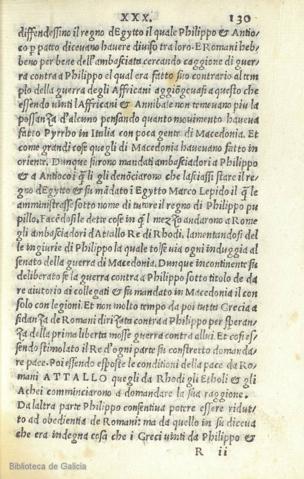 XXX. 130
diffendessino il regno d'Egytto il quale Philippo & Antio/
co ꝑ patto dicevano havere diviso tra loro. E Romani heb/
beno per bene dell'ambasciata cercando caggione di guer/
ra contra a Philippo el qual era fatto suo contrario al tem
plo della guerra degli Affricani aggiōgevasi a questo che
essendo vinti l'Affricani & Annibale non tenevano piu la
possanza d'alcuno pensando quanto movimento haveva
fatto Pyrrho in Italia con poca gente di Macedonia. Et
come grandi cose quegli di Macedonia havevano fatto in
oriente. Dunque furono mandati ambasciadori a Philippo
& a Antioco: q̄ li gli denōciarono che lasciassi stare il re
gno d'Egytto & fu mādato i Egytto Marco Lepido il q̄ le
amministrasse sotto nome di tutore il regno di Philippo pu
pillo. Facēdosi le dette cose in q̄l mezzo andarono a Rome
gli ambasciadori d'Attallo Re di Rhodi, lamentandosi del
le ingiurie di Philippo la quale tolse via ogni induggia al
senato della guerra di Macedonia. Dunque incontinente fu
deliberato se la guerra contra a Philippo sotto titolo de da
re aiutorio ai collegati & fu mandato in Macedonia il con
solo con legioni. Et non molto tempo da poi tutta Grecia a
fidanza de Romani dirizata contra a Philippo per speran/
za della prima liberta mosse guerra contra allui. Et cosi es/
sendo stimolato il Re d'ogni parte fu constretto domanda/
re pace. Poi essendo esposte le conditioni della pace da Ro/
mani ATTALLO quegli da Rhodi gli Etholi & gli
Achei comminciarono a domandare la sua raggione.
Da laltra parte Philippo consentiva potere essere ridut/
to ad obedientia de Romani: ma da quello in su diceva
che era indegna cosa che i Greci vinti da Philippo &
R ii
Biblioteca de Galicia